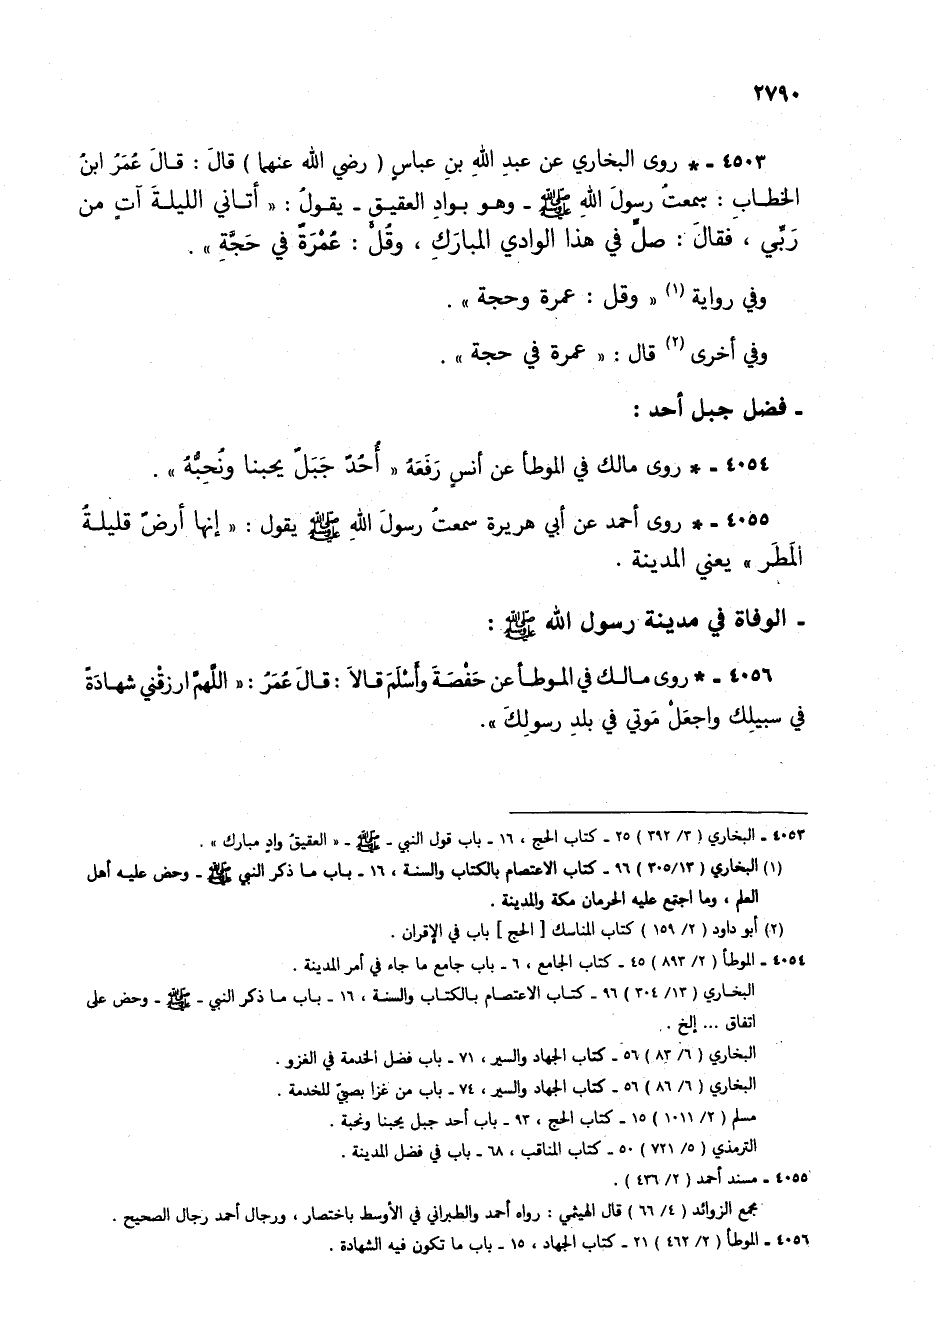 ٢٧٩٠
٤٥٠٣ ـ * روى البخاري عن عبدِ اللهِ بنِ عباسٍ ( رضي الله عنهما ) قالَ : قـالَ عُمَرُ ابنُ
الخطـابِ : سمعتُ رسولَ اللهِ ﷺ ـ وهـو بـوادِ العقيـقِ ـ يقـولُ : « أتـاني الليلـةَ آتٍ من
رَبِّي ، فقالَ : صلِّ في هذا الوادي المبارَكِ ، وقُلْ : عُمْرَةً في حَجَّةٍ » .
وفي رواية (١) « وقل : عمرة وحجة » .
وفي أخرى (٢) قال : « عمرة في حجة » .
ـ فضل جبل أحد :
٤٠٥٤ ـ * روى مالك في الموطأ عن أنسٍ رَفَعَهُ « أُحُدٌ جَبَلٌ يحبنا ونُحِبُّهُ » .
٤٠٥٥ ـ * روى أحمد عن أبي هريرة سمعتُ رسولَ اللهِ ﷺ يقول : « إنها أرضٌ قليلـةُ
المَطَرِ » يعني المدينة .
ـ الوفاة في مدينة رسول الله ﷺ :
٤٠٥٦ ـ * روى مـالـك في المـوطـأ عن حَفْصَةَ وأَسْلَمَ قـالاَ : قـالَ عُمَرُ : « اللَّهمَّ ارزقْني شهـادَةً
في سبيلِك واجعَلْ مَوتي في بلدِ رسولِكَ » .
٤٠٥٣ ـ البخاري ( ٣/ ٣٩٢ ) ٢٥ ـ كتاب الحج ، ١٦ ـ باب قول النبي ـ ﷺ ـ « العقيقُ وادٍ مبارك » .
(١) البخاري ( ٣٠٥/١٣ ) ٩٦ ـ كتاب الاعتصام بالكتاب والسنـة ، ١٦ ـ بـاب مـا ذكر النبي ﷺ ـ وحض عليـه أهل
العلم ، وما اجتمع عليه الحرمان مكة والمدينة .
(٢) أبو داود ( ٢/ ١٥٩ ) كتاب المناسك [ الحج ] باب في الإقران .
٤٠٥٤ ـ الموطأ ( ٢/ ٨٩٣ ) ٤٥ ـ كتاب الجامع ، ٦ ـ باب جامع ما جاء في أمر المدينة .
البخـاري ( ١٣/ ٣٠٤ ) ٩٦ ـ كتـاب الاعتصـام بـالكتـاب والسنـة ، ١٦ ـ بـاب مـا ذكر النبي ـ ﷺ ـ وحض على
اتفاق ... إلخ . .
البخاري ( ٦/ ٨٣ ) ٥٦ ـ كتاب الجهاد والسير ، ٧١ ـ باب فضل الخدمة في الغزو .
البخاري ( ٦/ ٨٦ ) ٥٦ ـ كتاب الجهاد والسير ، ٧٤ ـ باب من غزا بصبيّ للخدمة .
مسلم ( ٢/ ١٠١١ ) ١٥ ـ كتاب الحج ، ٩٣ ـ باب أحد جبل يحبنا ونحبة .
الترمذي ( ٥/ ٧٢١ ) ٥٠ ـ كتاب المناقب ، ٦٨ ـ باب في فضل المدينة .
٤٠٥٥ ـ مسند أحمد ( ٢/ ٤٣٦ ) .
مجمع الزوائد ( ٤/ ٦٦ ) قال الهيثمي : رواه أحمد والطبراني في الأوسط باختصار ، ورجال أحمد رجال الصحيح .
٤٠٥٦ ـ الموطأ ( ٢/ ٤٦٢ ) ٢١ ـ كتاب الجهاد ، ١٥ ـ باب ما تكون فيه الشهادة .